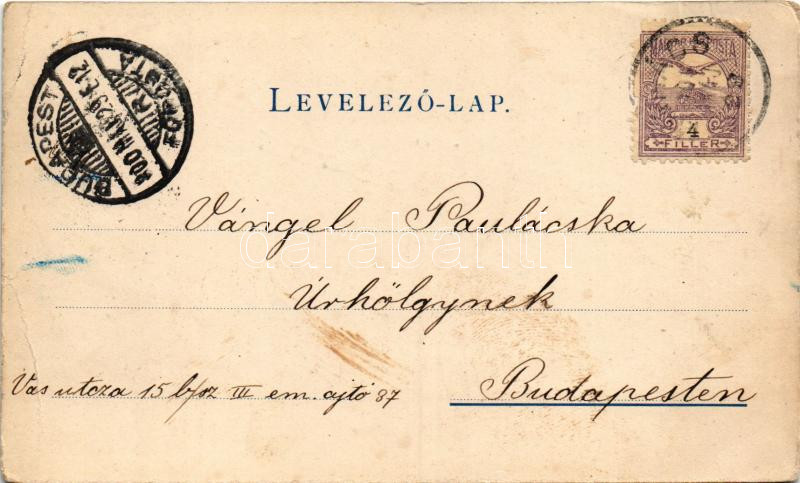 BUDAPEST
900 MÁJ 29
FŐPOSTA
MAGYAR KIR. POSTA
4
FILLER
LEVELEZŐ-LAP.
Vángel Paulácska
darabanth
Úrhölgynek
Vas utcza 15 b/sz III em. ajtó 37
Budapesten